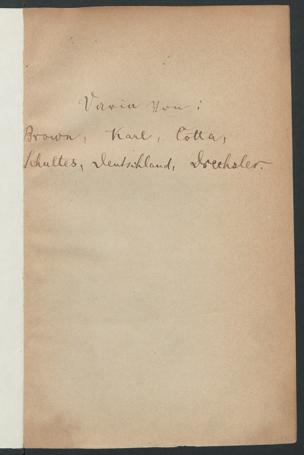 Varia von:
Brown, Karl, Cotta,
Schultes, Deutschland, Drechsler.